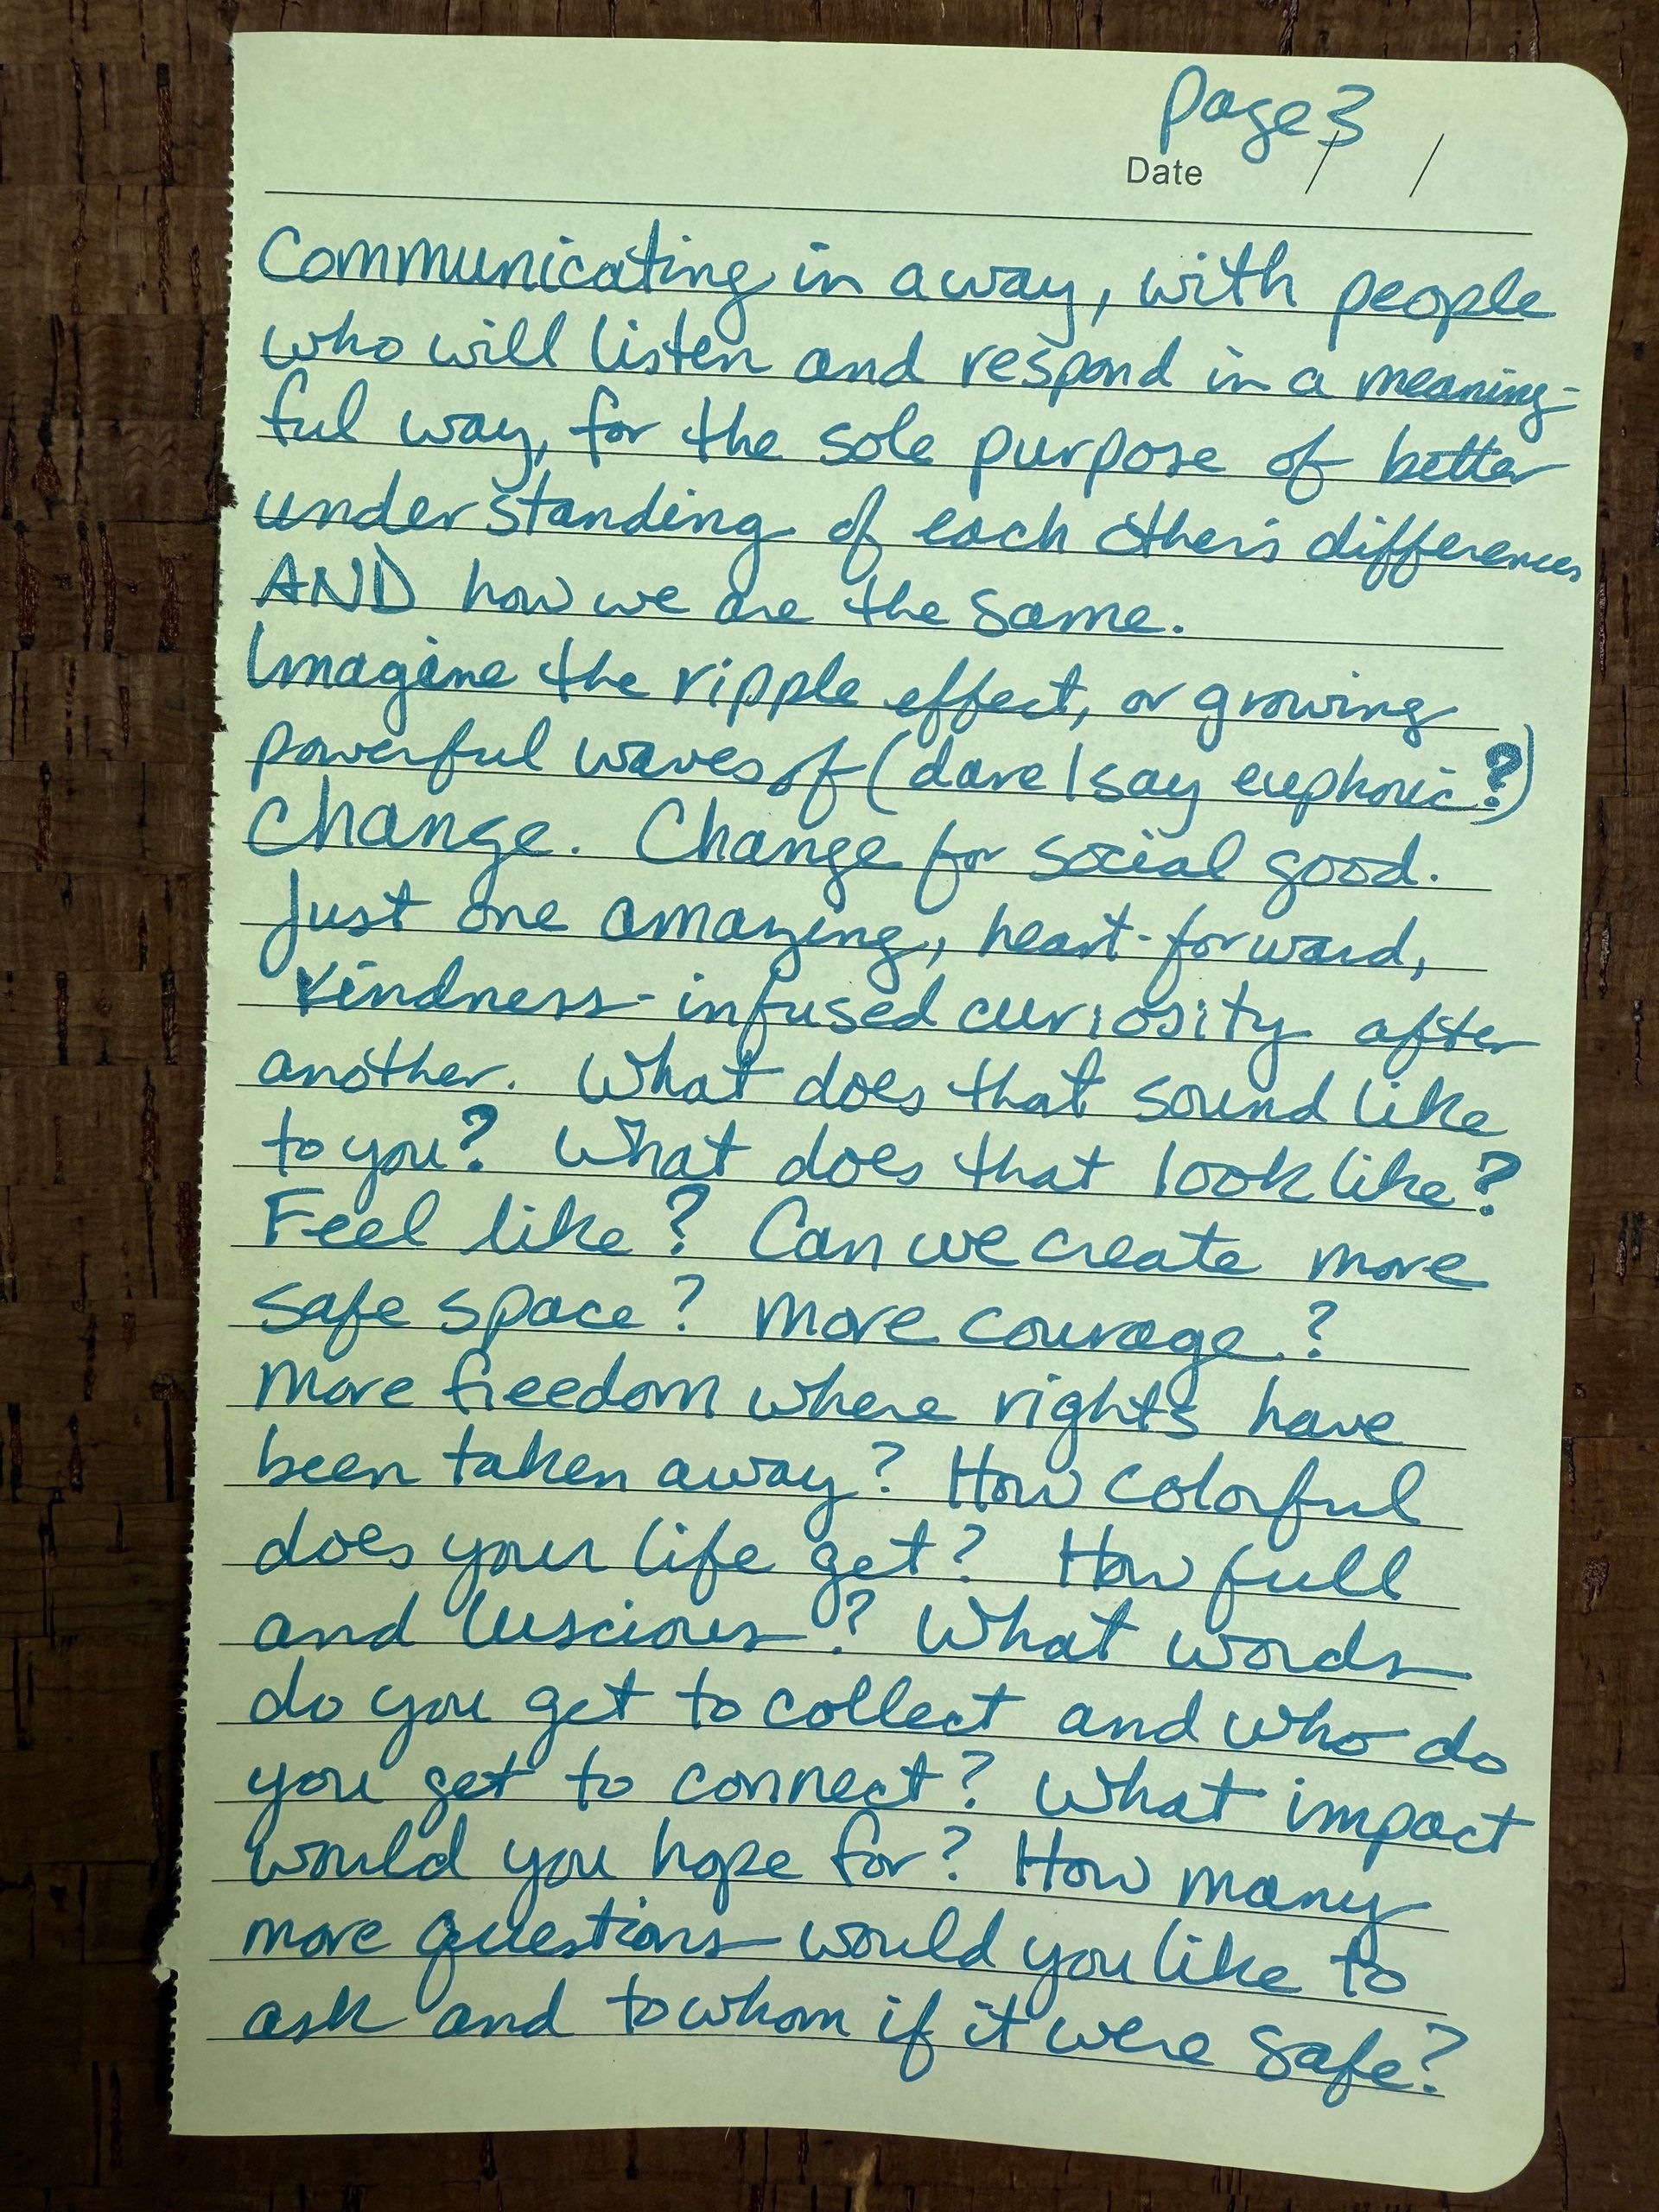 page 3
Date / /
Communicating in a way, with people
who will listen and respond in a meaning-
ful way, for the sole purpose of better
understanding of each other's differences
AND how we are the same.
Imagine the ripple effect, or growing
powerful waves of (dare I say euphoric?)
change. Change for social good.
Just one amazing, heart-forward,
kindness-infused curiosity after
another. What does that sound like
to you? What does that look like?
Feel like? Can we create more
safe space? More courage?
More freedom where rights have
been taken away? How colorful
does your life get? How full
and luscious? What words
do you get to collect and who do
you get to connect? What impact
would you hope for? How many
more questions would you like to
ask and to whom if it were safe?